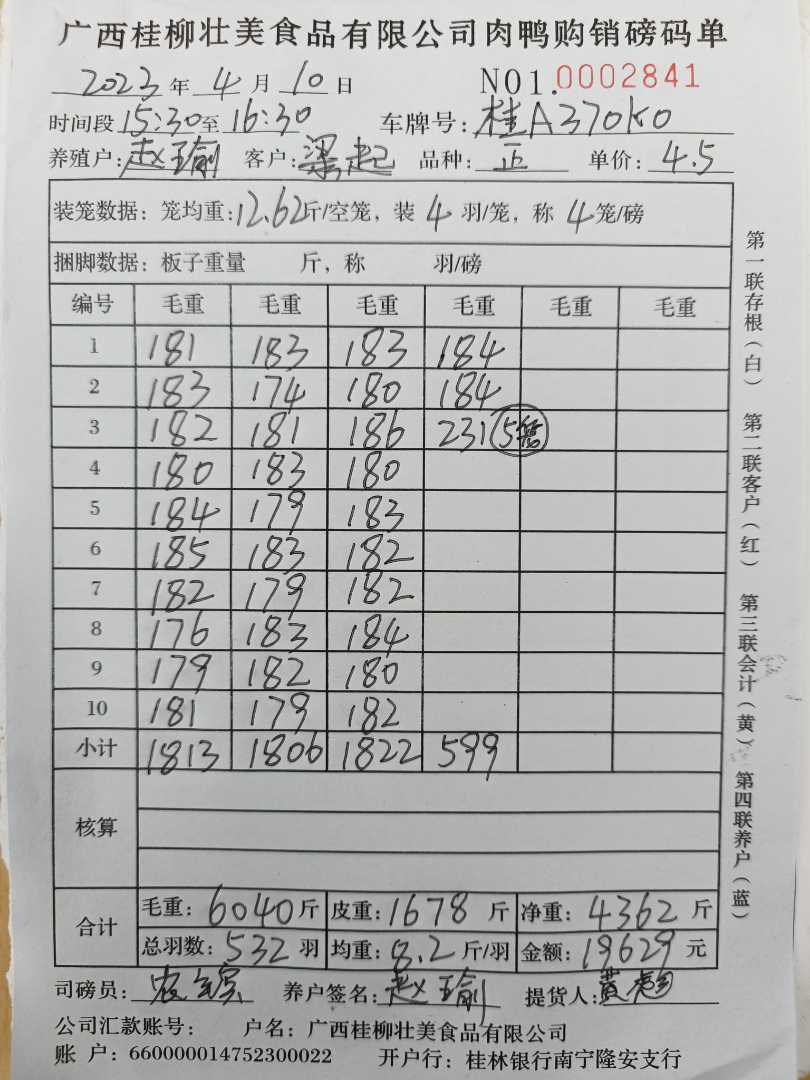 广西桂柳壮美食品有限公司肉鸭购销磅码单
2023 年 4 月 10 日 NO1. 0002841
时间段 15:30 至 16:30 车牌号: 桂A370K0
养殖户: 赵瑜 客户: 梁起 品种: 正 单价: 4.5
装笼数据: 笼均重: 12.62 斤/空笼, 装 4 羽/笼, 称 4 笼/磅
捆脚数据: 板子重量 斤, 称 羽/磅
编号 毛重 毛重 毛重 毛重 毛重 毛重
1 181 183 183 184
2 183 174 180 184
3 182 181 186 231 5笼
4 180 183 180
5 184 179 183
6 185 183 182
7 182 179 182
8 176 183 184
9 179 182 180
10 181 179 182
小计 1813 1806 1822 599
核算
合计
毛重: 6040 斤 皮重: 1678 斤 净重: 4362 斤
总羽数: 532 羽 均重: 8.2 斤/羽 金额: 19629 元
司磅员: 养户签名: 赵瑜 提货人: 黄
公司汇款账号: 户名: 广西桂柳壮美食品有限公司
账 户: 660000014752300022 开户行: 桂林银行南宁隆安支行
第一联存根(白) 第二联客户(红) 第三联会计(黄) 第四联养户(蓝)